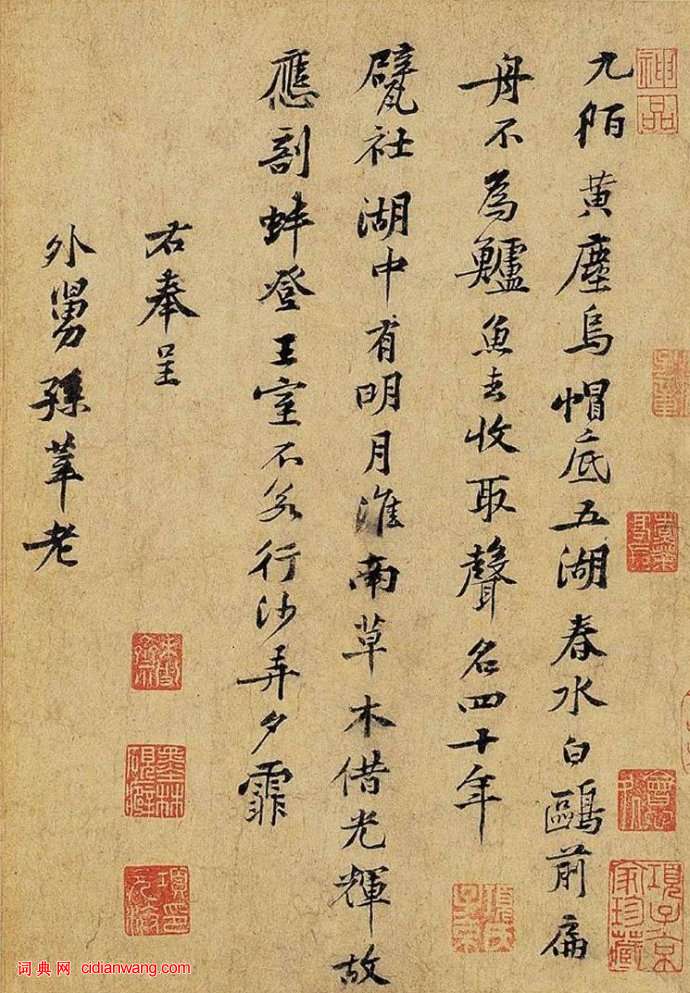 九陌黄塵烏帽底五湖春水白鷗前扁
舟不為鱸魚去收取聲名四十年
甓社湖中有明月淮南草木借光輝故
應剖蚌登王室不若行沙弄夕霏
右奉呈
外舅孫莘老
神品
項子京家珍藏
項元汴印
词典网 cidianwang.com